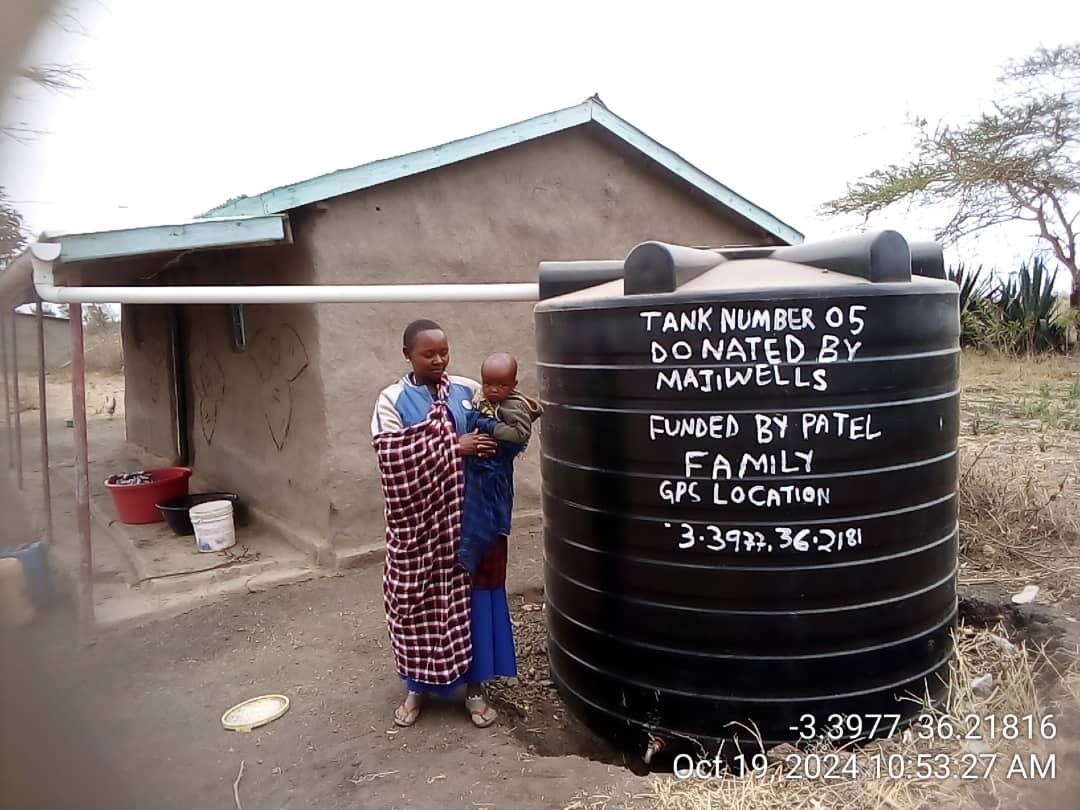 TANK NUMBER 05
DONATED BY
MAJIWELLS
FUNDED BY PATEL
FAMILY
GPS LOCATION
-3.3977, 36.2181
-3.3977, 36.21816
Oct 19, 2024 10:53:27 AM